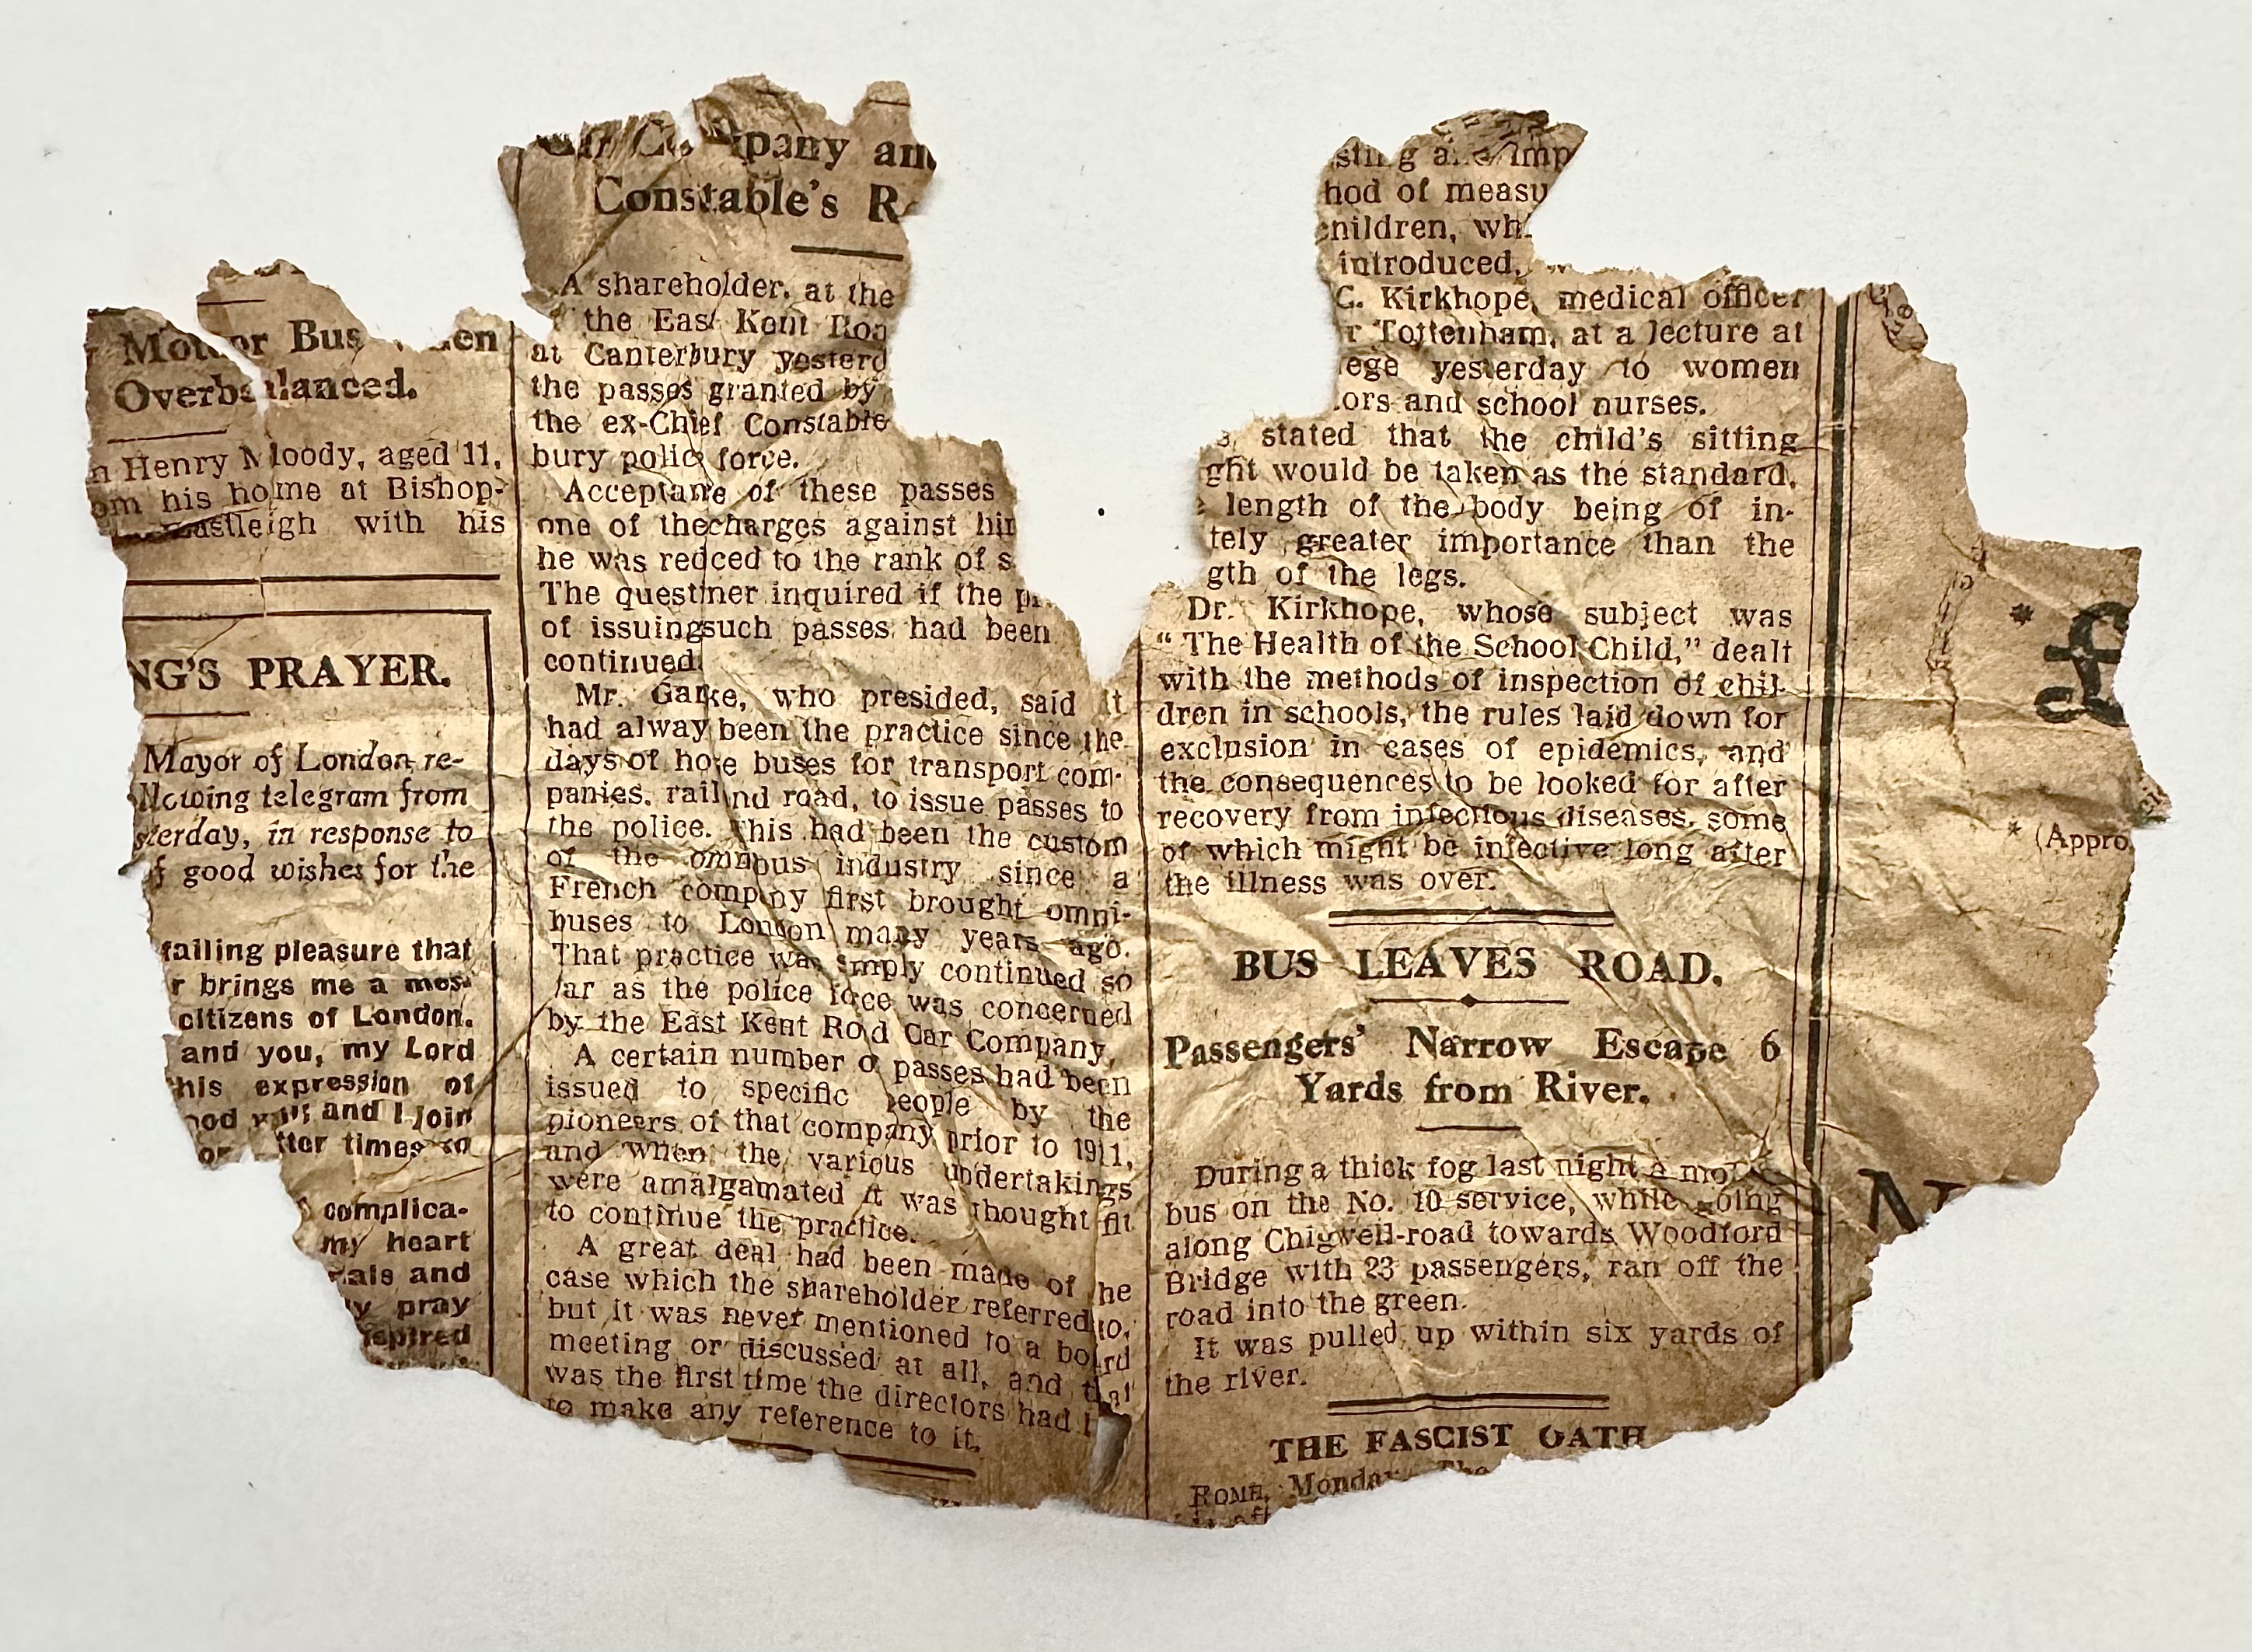 Motor Bus
Overbalanced.
Henry Moody, aged 11,
his home at Bishop-
Eastleigh with his
NG'S PRAYER.
Mayor of London re-
llowing telegram from
sterday, in response to
f good wishes for the
failing pleasure that
r brings me a mes-
citizens of London.
and you, my Lord
his expression of
ood will; and I join
times
complica-
my heart
als and
pray
spired
Company an
Constable's R
A shareholder, at the
the East Kent Roa
at Canterbury yesterd
the passes granted by
the ex-Chief Constable
bury polic force.
Acceptane of these passes
one of thecharges against hi
he was redced to the rank of s
The questiner inquired if the p
of issuingsuch passes had been
continued.
Mr. Garke, who presided, said it
had alway been the practice since the
days of hore buses for transport com-
panies, rail nd road, to issue passes to
the police. This had been the custom
of the omnibus industry since a
French company first brought omni-
buses to London many years ago.
That practice was smply continued so
far as the police foce was concerned
by the East Kent Road Car Company.
A certain number o passes had been
issued to specific people by the
pioneers of that company prior to 1911,
and when the various undertakings
were amalgamated it was thought fit
to continue the practice.
A great deal had been made of he
case which the shareholder referred to,
but it was never mentioned to a board
meeting or discussed at all, and that
was the first time the directors had
to make any reference to it.
sting and imp
hod of measu
children, wh
introduced,
C. Kirkhope, medical officer
r Tottenham, at a lecture at
ege yesterday to women
ors and school nurses.
stated that the child's sitting
ght would be taken as the standard,
length of the body being of in-
tely greater importance than the
gth of the legs.
Dr. Kirkhope, whose subject was
“ The Health of the School Child,” dealt
with the methods of inspection of chil-
dren in schools, the rules laid down for
exclusion in cases of epidemics, and
the consequences to be looked for after
recovery from infectious diseases, some
of which might be infective long after
the illness was over.
BUS LEAVES ROAD.
Passengers' Narrow Escape 6
Yards from River.
During a thick fog last night a mot
bus on the No. 10 service, while going
along Chigwell-road towards Woodford
Bridge with 23 passengers, ran off the
road into the green.
It was pulled up within six yards of
the river.
THE FASCIST OATH
ROME, Monday. The
* £
* (Appro
N